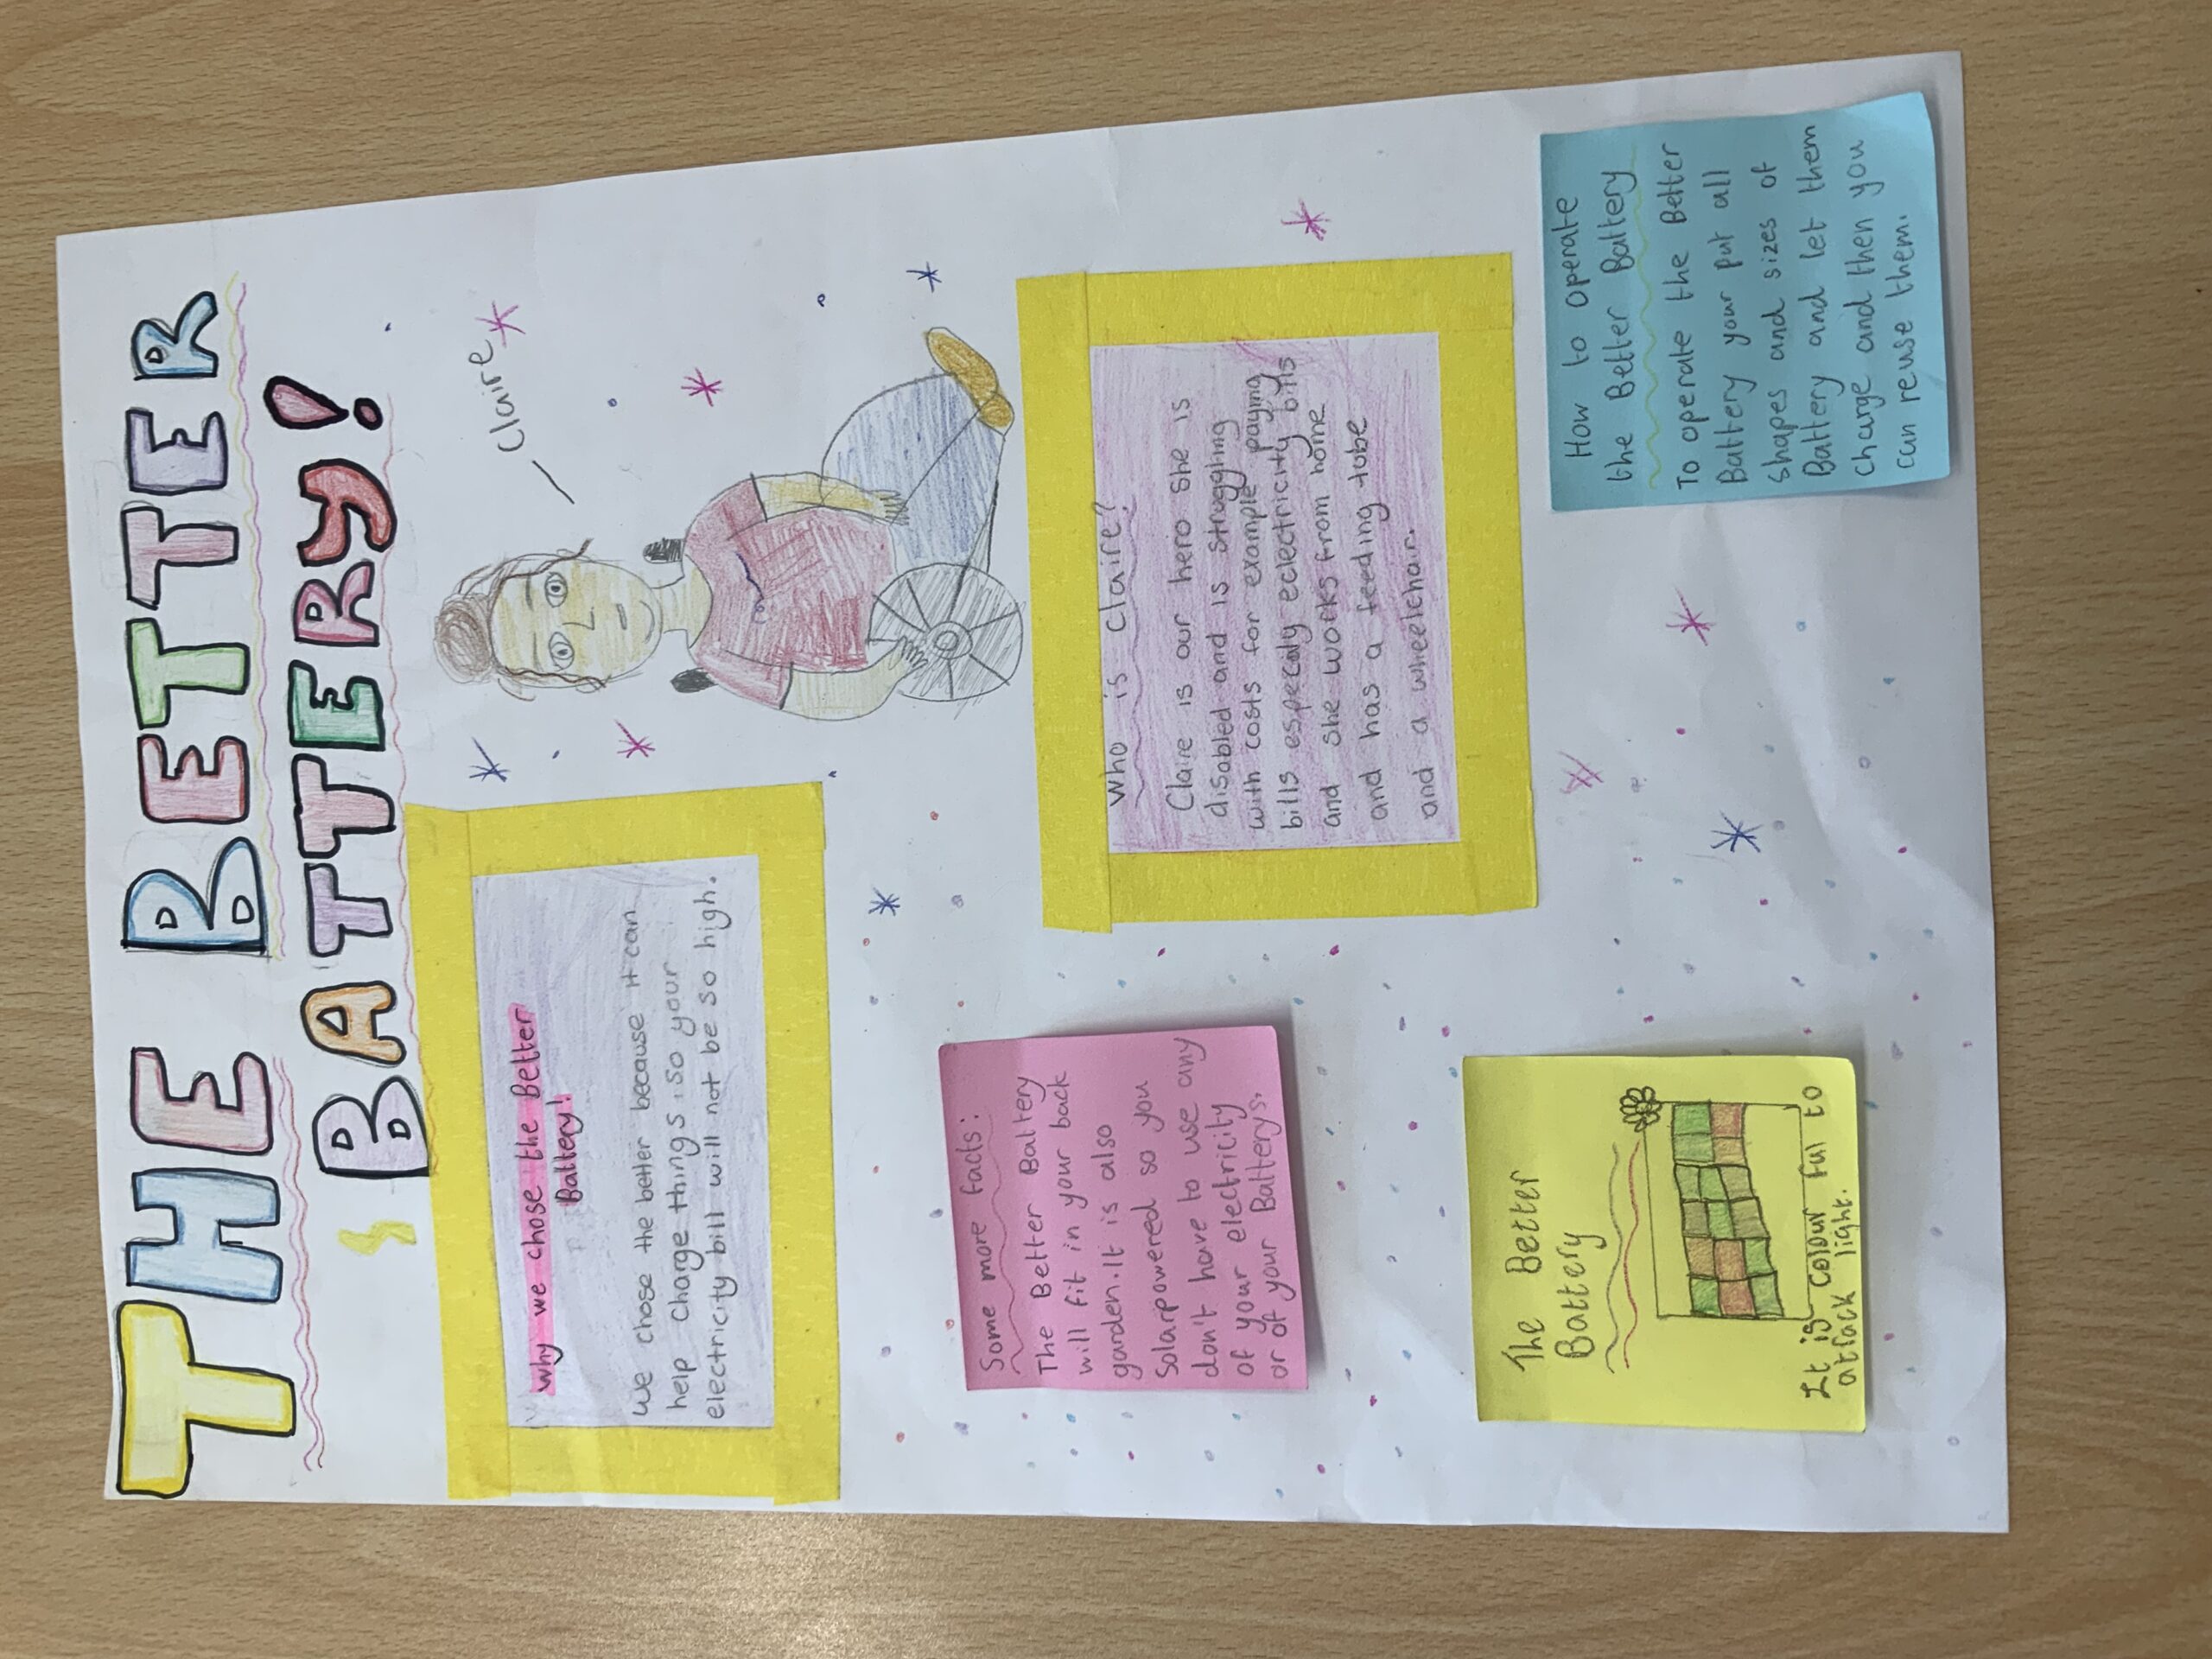 THE BETTER
BATTERY!
Claire
Why we chose the Better
Battery!
We chose the better because it can
help charge things. So your
electricity bill will not be so high.
Who is Claire?
Claire is our hero she is
disabled and is struggling
with costs for example paying
bills especaly eclectricity bills
and she works from home
and has a feeding tube
and a wheelchair.
Some more facts:
The Better Battery
will fit in your back
garden. It is also
Solarpowered so you
don't have to use any
of your electricity
or of your Batterys.
The Better
Battery
It is colour ful to
attrack light.
How to operate
the Better Battery
To operate the Better
Battery your put all
shapes and sizes of
Battery and let them
charge and then you
can reuse them.